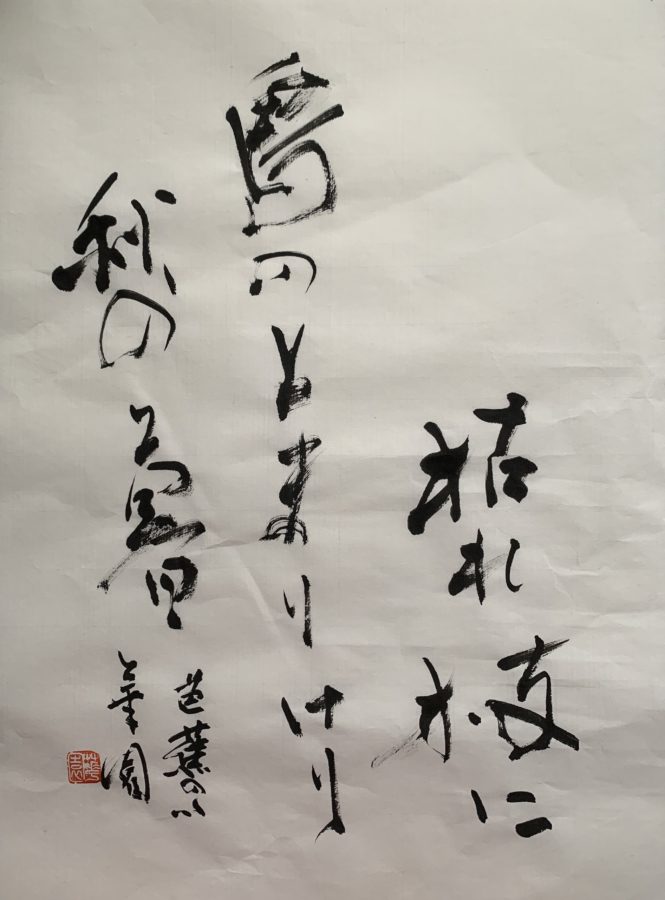 枯れ枝に
烏のとまりけり
秋の暮
芭蕉の句